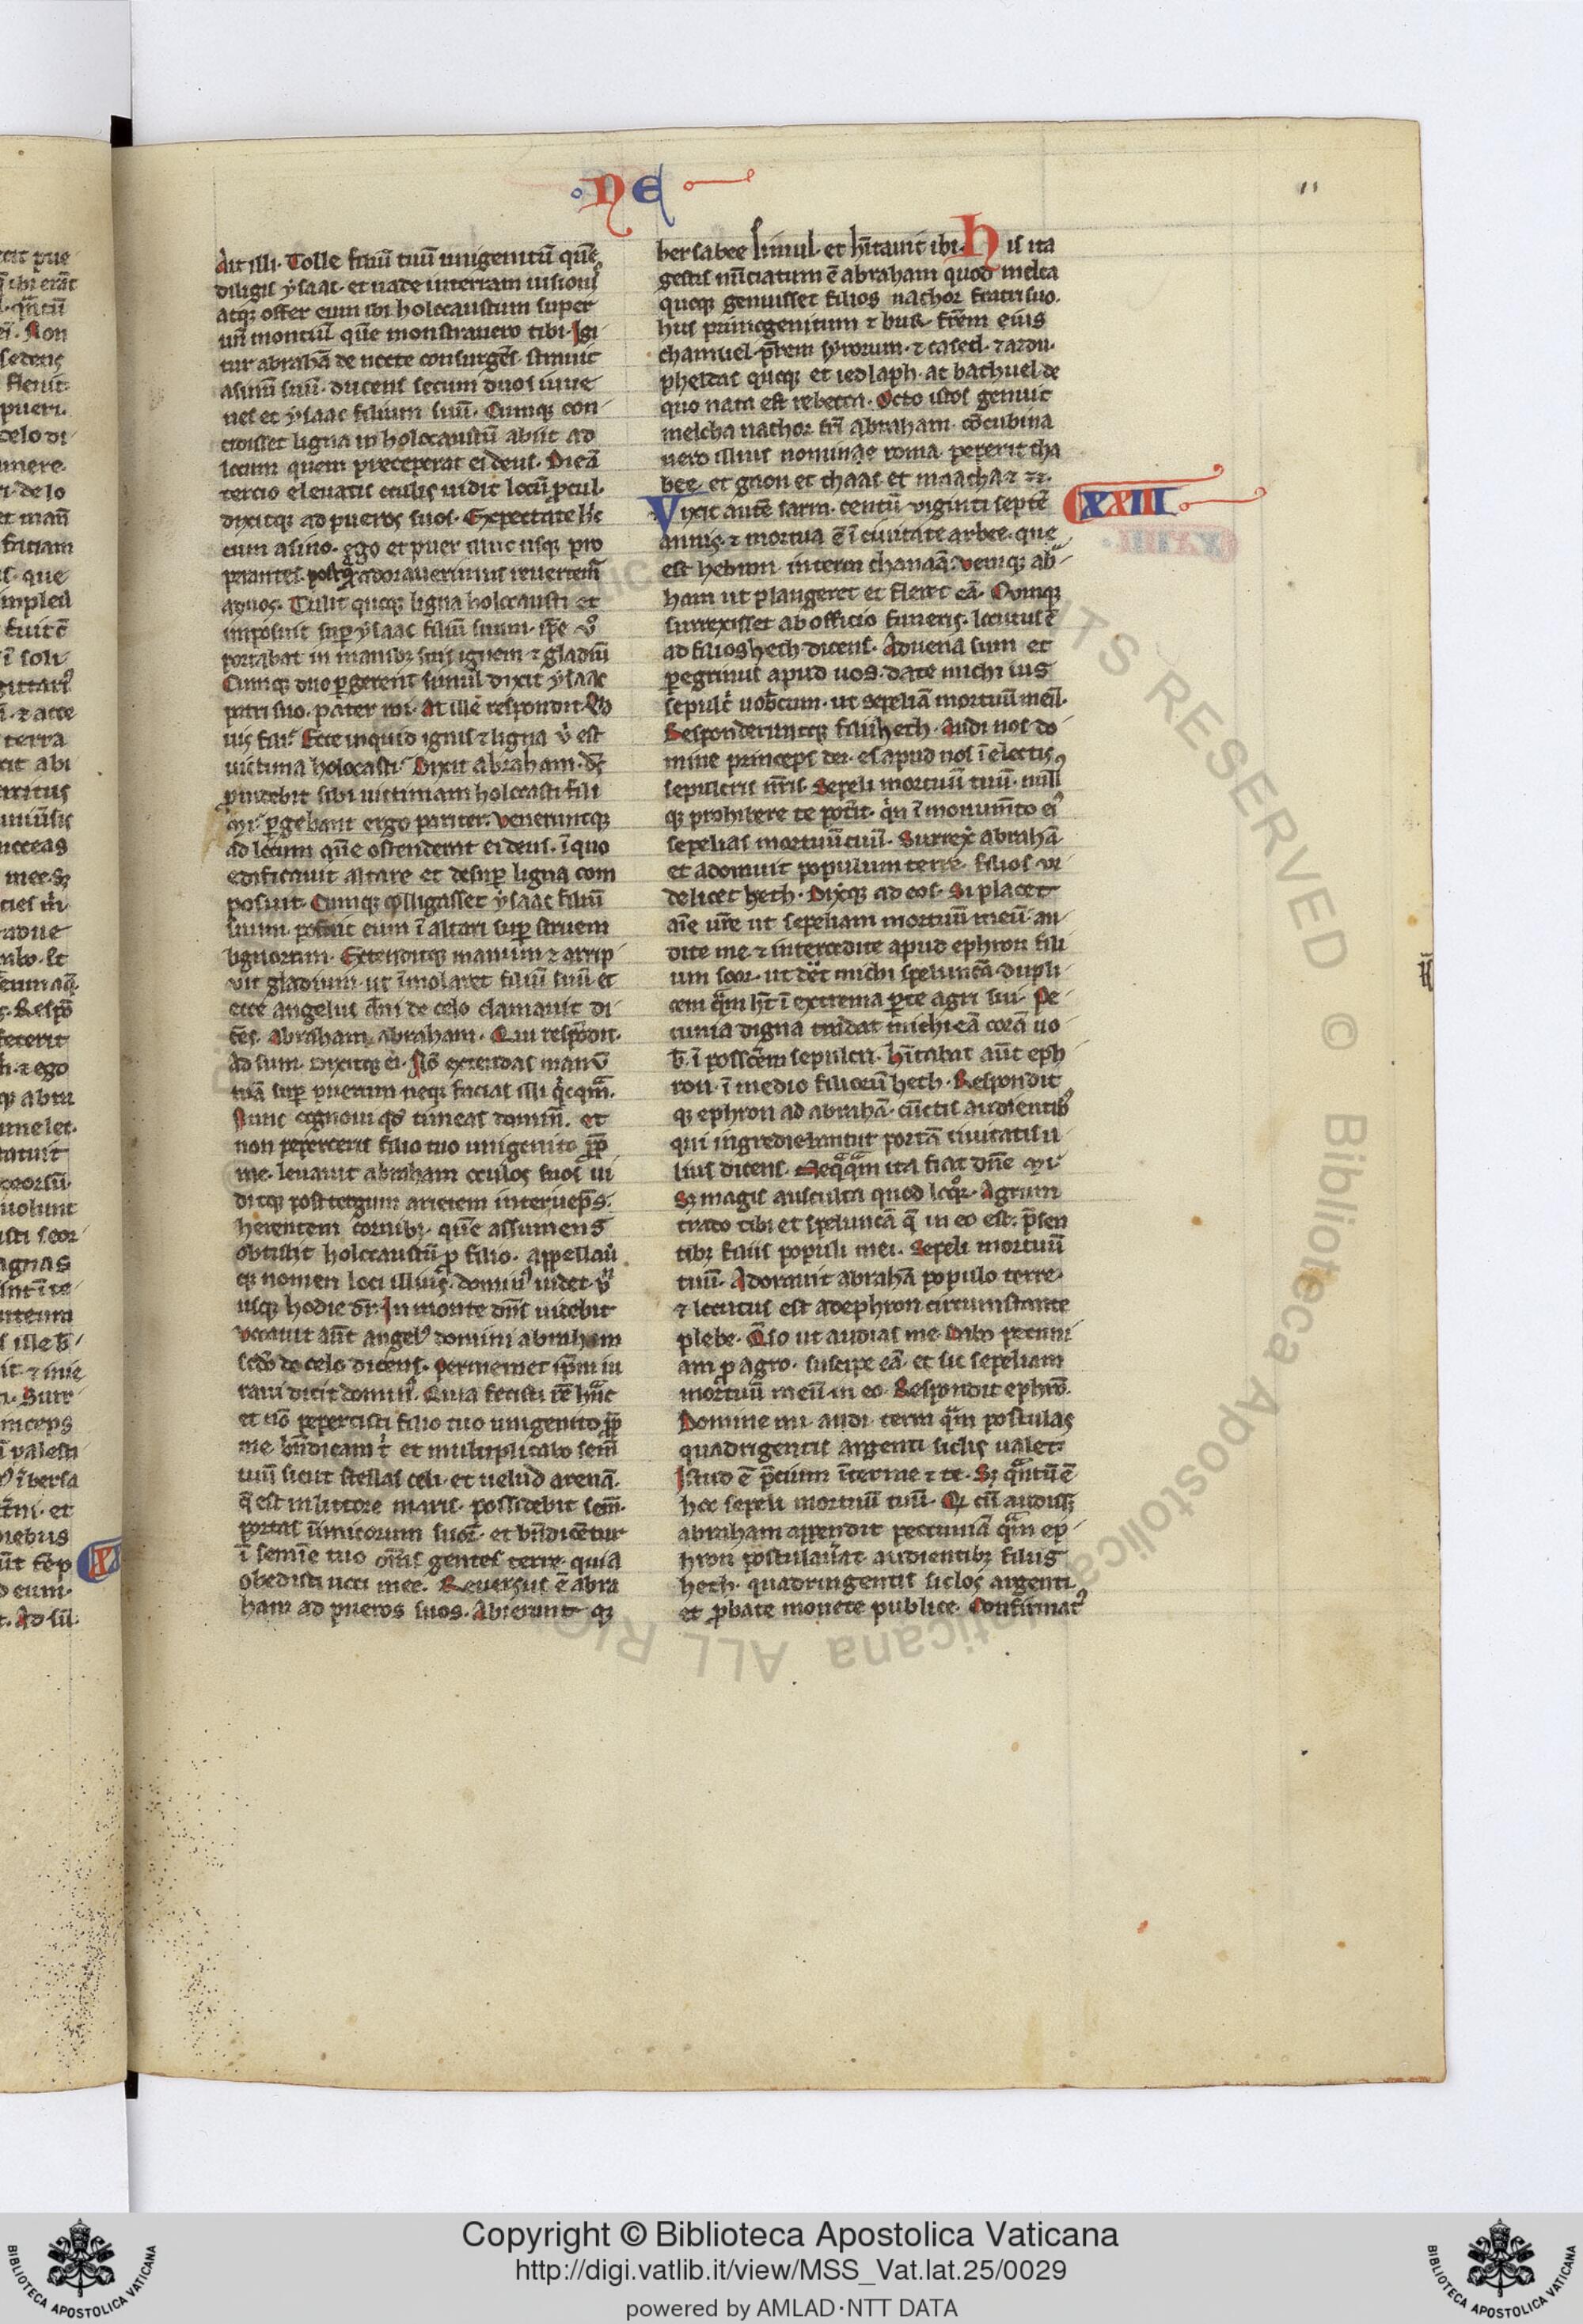 NE
11
Ait illi. Tolle filiū tuū unigenitū quē
diligis ysaac. et uade in terram uisionis
atqȝ offer eum ibi holocaustum super
unū montiū quē monstrauero tibi. Igi
tur abrahā de nocte consurgēs. strauit
asinū suū. ducens secum duos iuue
nes et ysaac filium suū. Cumqȝ con
cidisset ligna in holocaustū abiit ad
locum quem preceperat ei deus. Die aū
tercio eleuatis oculis uidit locū ꝓcul.
dixitqȝ ad pueros suos. Expectate hic
cum asino. ego et puer illuc usqȝ pro
perantes. postqͣ adorauerimus reuertemͬ
ad uos. Tulit quoqȝ ligna holocausti et
imposuit suꝑ ysaac filiū suum. ip̄e ū
portabat in manibȝ suis ignem ⁊ gladiū
Cumqȝ duo ꝑgerent simul dixit ysaac
patri suo. pater mi. At ille respondit. Qͥd
uis fili. Ecce inquid ignis ⁊ ligna ū est
uictima holocasti. Dixit abraham. dēs
ꝓuidebit sibi uictimam holocasti fili
mi. ꝑgebant ergo pariter. Veneruntqȝ
ad locum quē ostenderat ei deus. ī quo
edificauit altare et desuꝑ ligna com
posuit. Cumqȝ ꝯlligasset ysaac filiū
suum. posuit eum ī altari suꝑ struem
lignorum. Extenditqȝ manum ⁊ arrip
uit gladium. ut īmolaret filiū suū et
ecce angelus dn̄i de celo clamauit di
cēs. Abraham abraham. Qui respōdit.
Ad sum. Dixitqȝ ei. Nō extendas manū
tuā suꝑ puerum neqȝ facias illi qͥcqͣm.
Nunc cognoui qͦd timeas dominū. et
non pepercerit filio tuo unigenito ꝓp̄
me. leuauit abraham oculos suos ui
ditqȝ post tergum arietem inter uepēs.
herentem cornibȝ. quē assumens
obtulit holocaustū ꝓ filio. appellauͥ
qȝ nomen loci illius. dominꝰ uidet. vn̄
usqȝ hodie dr̄. In monte dn̄s uidebit
Vocauit aūt angelꝰ domini abraham
scdō de celo dicens. per memet ip̄m iu
raui dicit dominꝰ. Quia fecisti rē hāc
et nō pepercisti filio tuo unigenito ꝓp̄
me. bn̄dicam tͥ et multiplicabo sem̄
tuū sicut stellas celi. et uelud arenā.
q̄ est in littore maris. possidebit sem̄.
portas inimicorum suoꝝ. et bn̄dicētur
ī semīe tuo om̄s gentes terre. quia
obedisti uoci mee. Reuersus ē abra
ham ad pueros suos. Abierunt qȝ
bersabee simul. et hītauit ibi. His ita
gestis nūciatum ē abraham quod melca
quoqȝ genuisset filios nachor fratri suo.
hus primogenitum ⁊ bus. frēm eius
chamuel. pr̄em syrorum. ⁊ cased. ⁊ azau.
pheldas quoqȝ et iedlaph. ac bathuel de
quo nata est rebecca. Octo istos genuit
melcha nachor frī abraham. cōcubina
uero illius nomine roma. peperit tha
bee. et gaon et thaas et maacha ⁊ ⁊c.
Vixit autē sarra. centū viginti septē
XXIII
annis. ⁊ mortua ē ī ciuitate arbee. que
est hebron. in terra chanaā. venitqȝ ab̄
ham ut plangeret et fleret eā. Cumqȝ
surrexisset ab officio funeris. locutus ē
ad filios heth dicens. Aduena sum et
ꝑegrinus apud uos. date michi ius
sepulcͥ uobcum. ut sepeliā mortuū meū.
Responderuntqȝ filii heth. Audi nos do
mine princeps dei. es apud nos ī electis
sepulcris nr̄is. Sepeli mortuū tuū. null
qȝ prohibere te potͥt. qͥn ī monum̄to eiꝰ
sepelias mortuū tuū. Surrexͥ abrahā
et adorauit populum terre. filios vi
delicet heth. Dixͥqȝ ad eos. Si placet
aīe ur̄e ut sepeliam mortuū meū. au
dite me ⁊ intercedite apud ephron fili
um seor. ut det michi speluncā dupli
cem qͣm hʒ ī extrema ꝑte agri sui. Pe
cunia digna tradat michi eā corā uo
b̄. ī possēm sepulcri. Hītabat aūt eph
ron. ī medio filiorū heth. Respondit
qȝ ephron ad abrahā. cūctis audientibꝰ
qui ingrediebantur portā ciuitatis il
lius dicens. Neqͣqͣm ita fiat dn̄e mi.
Sȝ magis ausculta quod loqͦr. Agrum
trado tibi et speluncā q̄ in eo est. p̄sen
tibȝ filiis populi mei. Sepeli mortuū
tuū. Adorauit abrahā populo terre.
⁊ locutus est ad ephron circumstante
plebe. Q̄so ut audias me. dabo pecuni
am ꝓ agro. suscipe eā. et sic sepeliam
mortuū meū in eo. Respondit ephrō.
Domine mi. audi. terra qͣm postulas
quadrigentis argenti siclis ualet.
Istud ē p̄cium īter me ⁊ te. Sȝ qͣntū ē
hoc sepeli mortuū tuū. Qͦ cū audissȝ
abraham appendit peccuniā qͣm ep
hron postulauͣat. audientibȝ filiis
heth. quadringentis siclos argenti
et ꝓbate monete publice. Confirmatꝰ
Copyright © Biblioteca Apostolica Vaticana
http://digi.vatlib.it/view/MSS_Vat.lat.25/0029
powered by AMLAD·NTT DATA